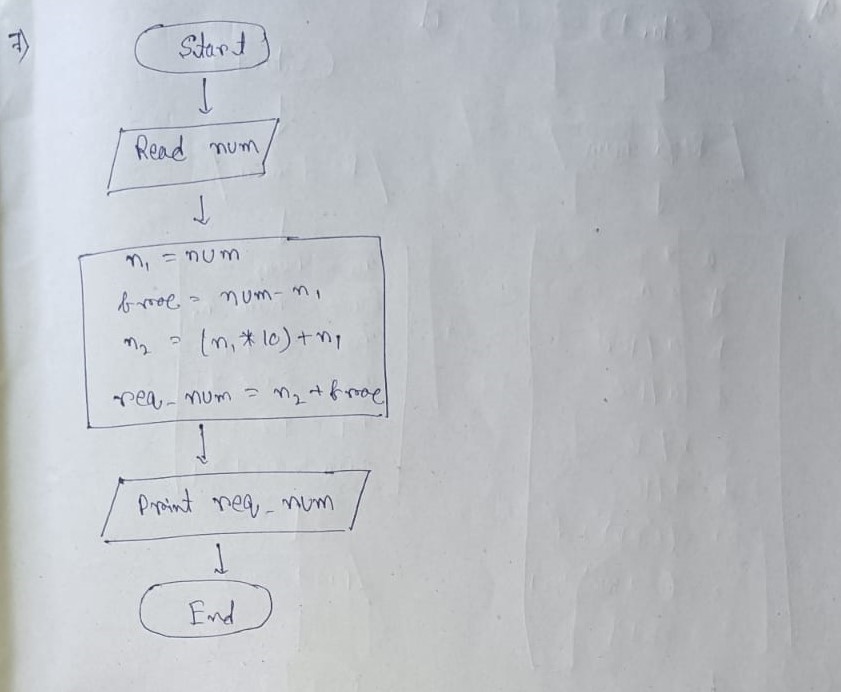 7)
Start
Read num
n₁ = num
frac = num - n₁
n₂ = (n₁ * 10) + n₁
req_num = n₂ + frac
Print req_num
End